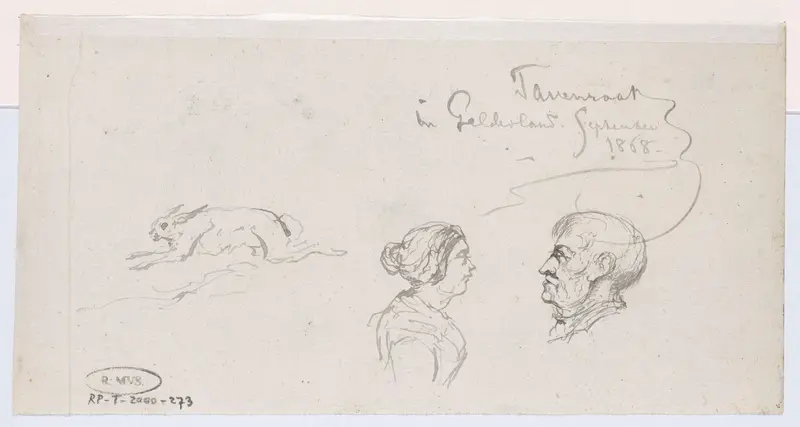 Tavenraat
in Gelderland. September
1868-
R. MVS.
RP-T-2000-273